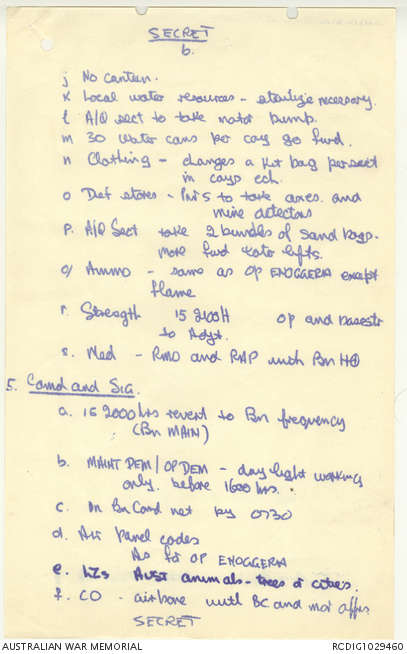 SECRET
6.
j No canteen.
k Local water resources - sterilize necessary.
l A/Q sect to take motor pump.
m 30 water cans per coy go fwd.
n Clothing - changes a kit bag per sect
in coys ech.
o Def stores - Pnrs to take axes. and
mine detectors
p. A/Q Sect take 2 bundles of sand bags.
more fwd later lifts.
q Ammo - same as OP ENOGGERA except
flame
r. Strength 15 2100H OP and
to Adjt.
s. Med - RMO and RAP with Bn HQ
5. Comd and Sig.
a. 15 2000 hrs revert to Bn frequency
(Bn MAIN)
b. MAINT DEM / OP DEM - day light working
only. before 1600 hrs.
c. On Bn Comd net by 0730
d. Air Panel codes
As for OP ENOGGERA
e. LZs AUST animals - trees or cities.
f. CO - airborne until BC and mor offrs
SECRET
AUSTRALIAN WAR MEMORIAL
RCDIG1029460